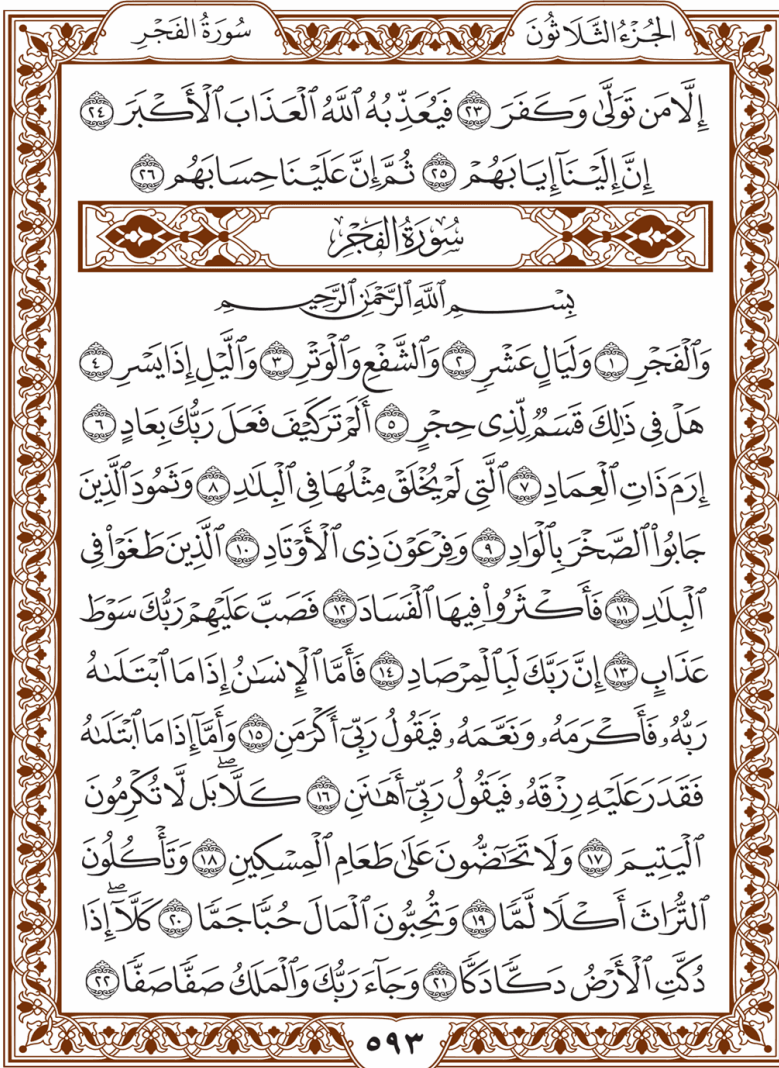 الجُزْءُ الثَّلَاثُونَ
سُورَةُ الفَجْرِ
إِلَّا مَن تَوَلَّىٰ وَكَفَرَ ٢٣ فَيُعَذِّبُهُ ٱللَّهُ ٱلْعَذَابَ ٱلْأَكْبَرَ ٢٤
إِنَّ إِلَيْنَآ إِيَابَهُمْ ٢٥ ثُمَّ إِنَّ عَلَيْنَا حِسَابَهُم ٢٦
سُورَةُ الفَجْرِ
بِسْمِ ٱللَّهِ ٱلرَّحْمَٰنِ ٱلرَّحِيمِ
وَٱلْفَجْرِ ١ وَلَيَالٍ عَشْرٍ ٢ وَٱلشَّفْعِ وَٱلْوَتْرِ ٣ وَٱلَّيْلِ إِذَا يَسْرِ ٤
هَلْ فِى ذَٰلِكَ قَسَمٌ لِّذِى حِجْرٍ ٥ أَلَمْ تَرَ كَيْفَ فَعَلَ رَبُّكَ بِعَادٍ ٦
إِرَمَ ذَاتِ ٱلْعِمَادِ ٧ ٱلَّتِى لَمْ يُخْلَقْ مِثْلُهَا فِى ٱلْبِلَٰدِ ٨ وَثَمُودَ ٱلَّذِينَ
جَابُوا۟ ٱلصَّخْرَ بِٱلْوَادِ ٩ وَفِرْعَوْنَ ذِى ٱلْأَوْتَادِ ١٠ ٱلَّذِينَ طَغَوْا۟ فِى
ٱلْبِلَٰدِ ١١ فَأَكْثَرُوا۟ فِيهَا ٱلْفَسَادَ ١٢ فَصَبَّ عَلَيْهِمْ رَبُّكَ سَوْطَ
عَذَابٍ ١٣ إِنَّ رَبَّكَ لَبِٱلْمِرْصَادِ ١٤ فَأَمَّا ٱلْإِنسَٰنُ إِذَا مَا ٱبْتَلَىٰهُ
رَبُّهُۥ فَأَكْرَمَهُۥ وَنَعَّمَهُۥ فَيَقُولُ رَبِّىٓ أَكْرَمَنِ ١٥ وَأَمَّآ إِذَا مَا ٱبْتَلَىٰهُ
فَقَدَرَ عَلَيْهِ رِزْقَهُۥ فَيَقُولُ رَبِّىٓ أَهَٰنَنِ ١٦ كَلَّاۖ بَل لَّا تُكْرِمُونَ
ٱلْيَتِيمَ ١٧ وَلَا تَحَٰٓضُّونَ عَلَىٰ طَعَامِ ٱلْمِسْكِينِ ١٨ وَتَأْكُلُونَ
ٱلتُّرَاثَ أَكْلًا لَّمًّا ١٩ وَتُحِبُّونَ ٱلْمَالَ حُبًّا جَمًّا ٢٠ كَلَّآۖ إِذَا
دُكَّتِ ٱلْأَرْضُ دَكًّا دَكًّا ٢١ وَجَآءَ رَبُّكَ وَٱلْمَلَكُ صَفًّا صَفًّا ٢٢
٥٩٣